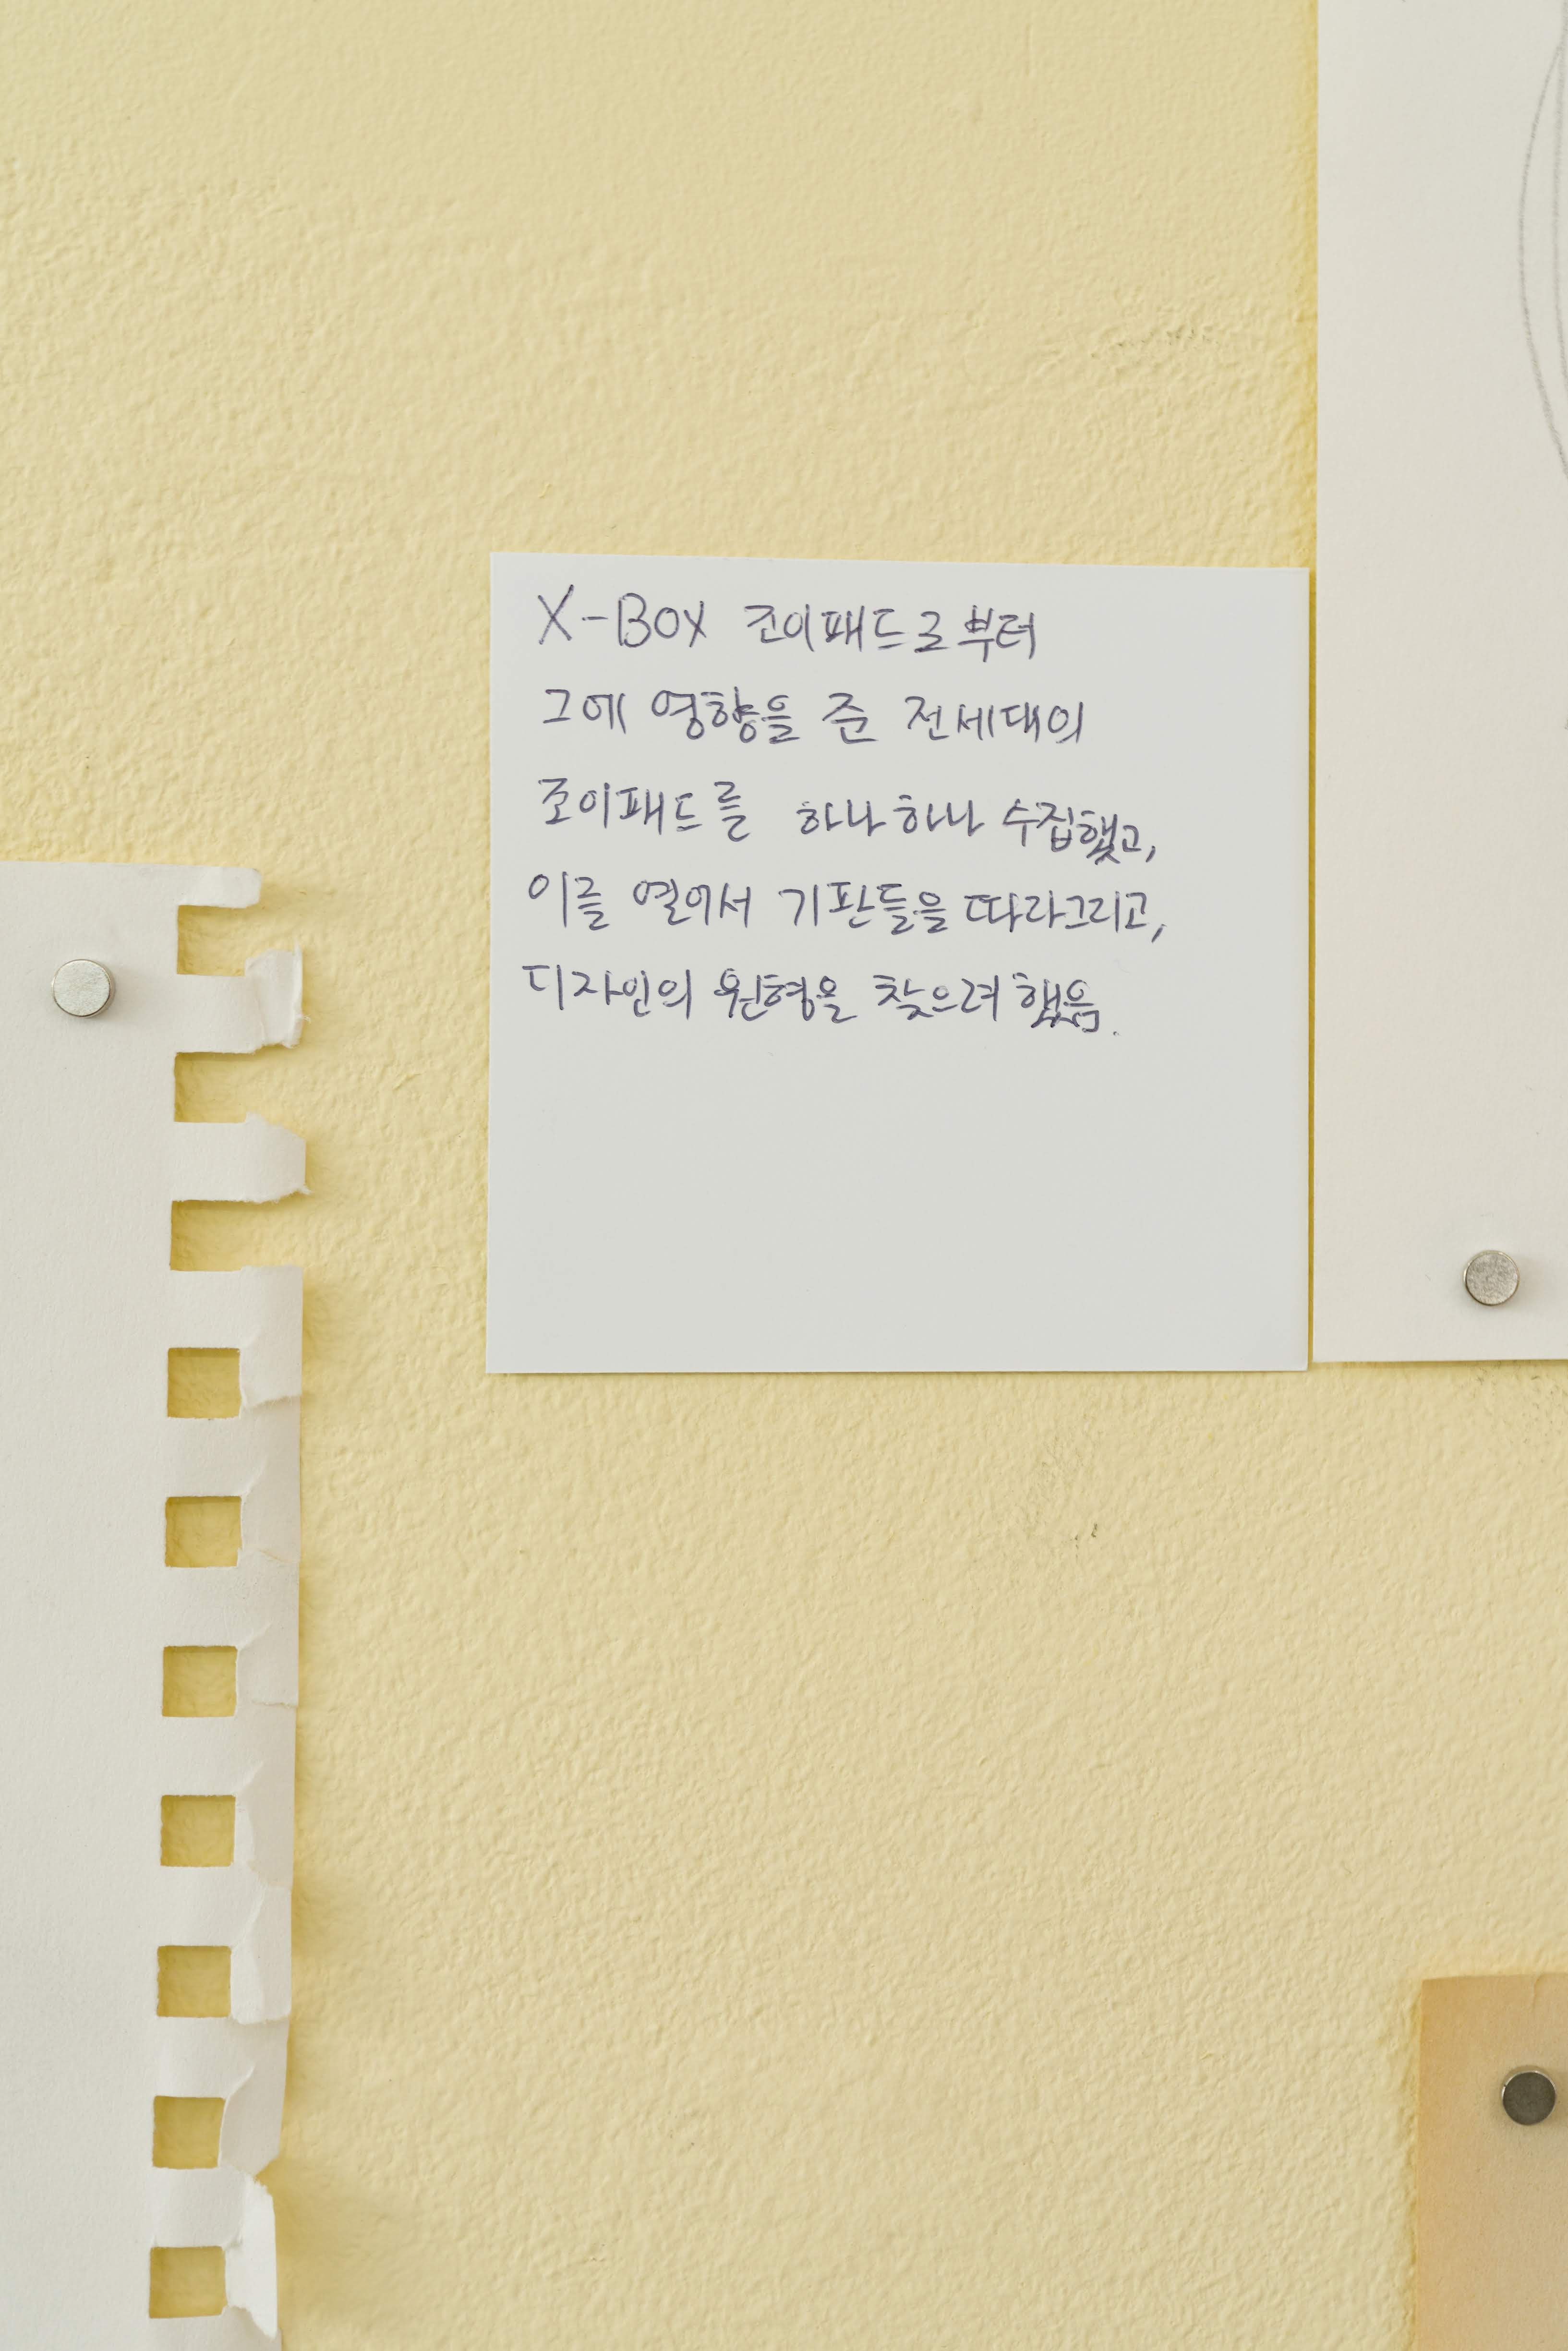 X-BOX 조이패드로부터
그에 영향을 준 전세대의
조이패드를 하나하나 수집했고,
이를 열어서 기판들을 따라그리고,
디자인의 원형을 찾으려 했음.